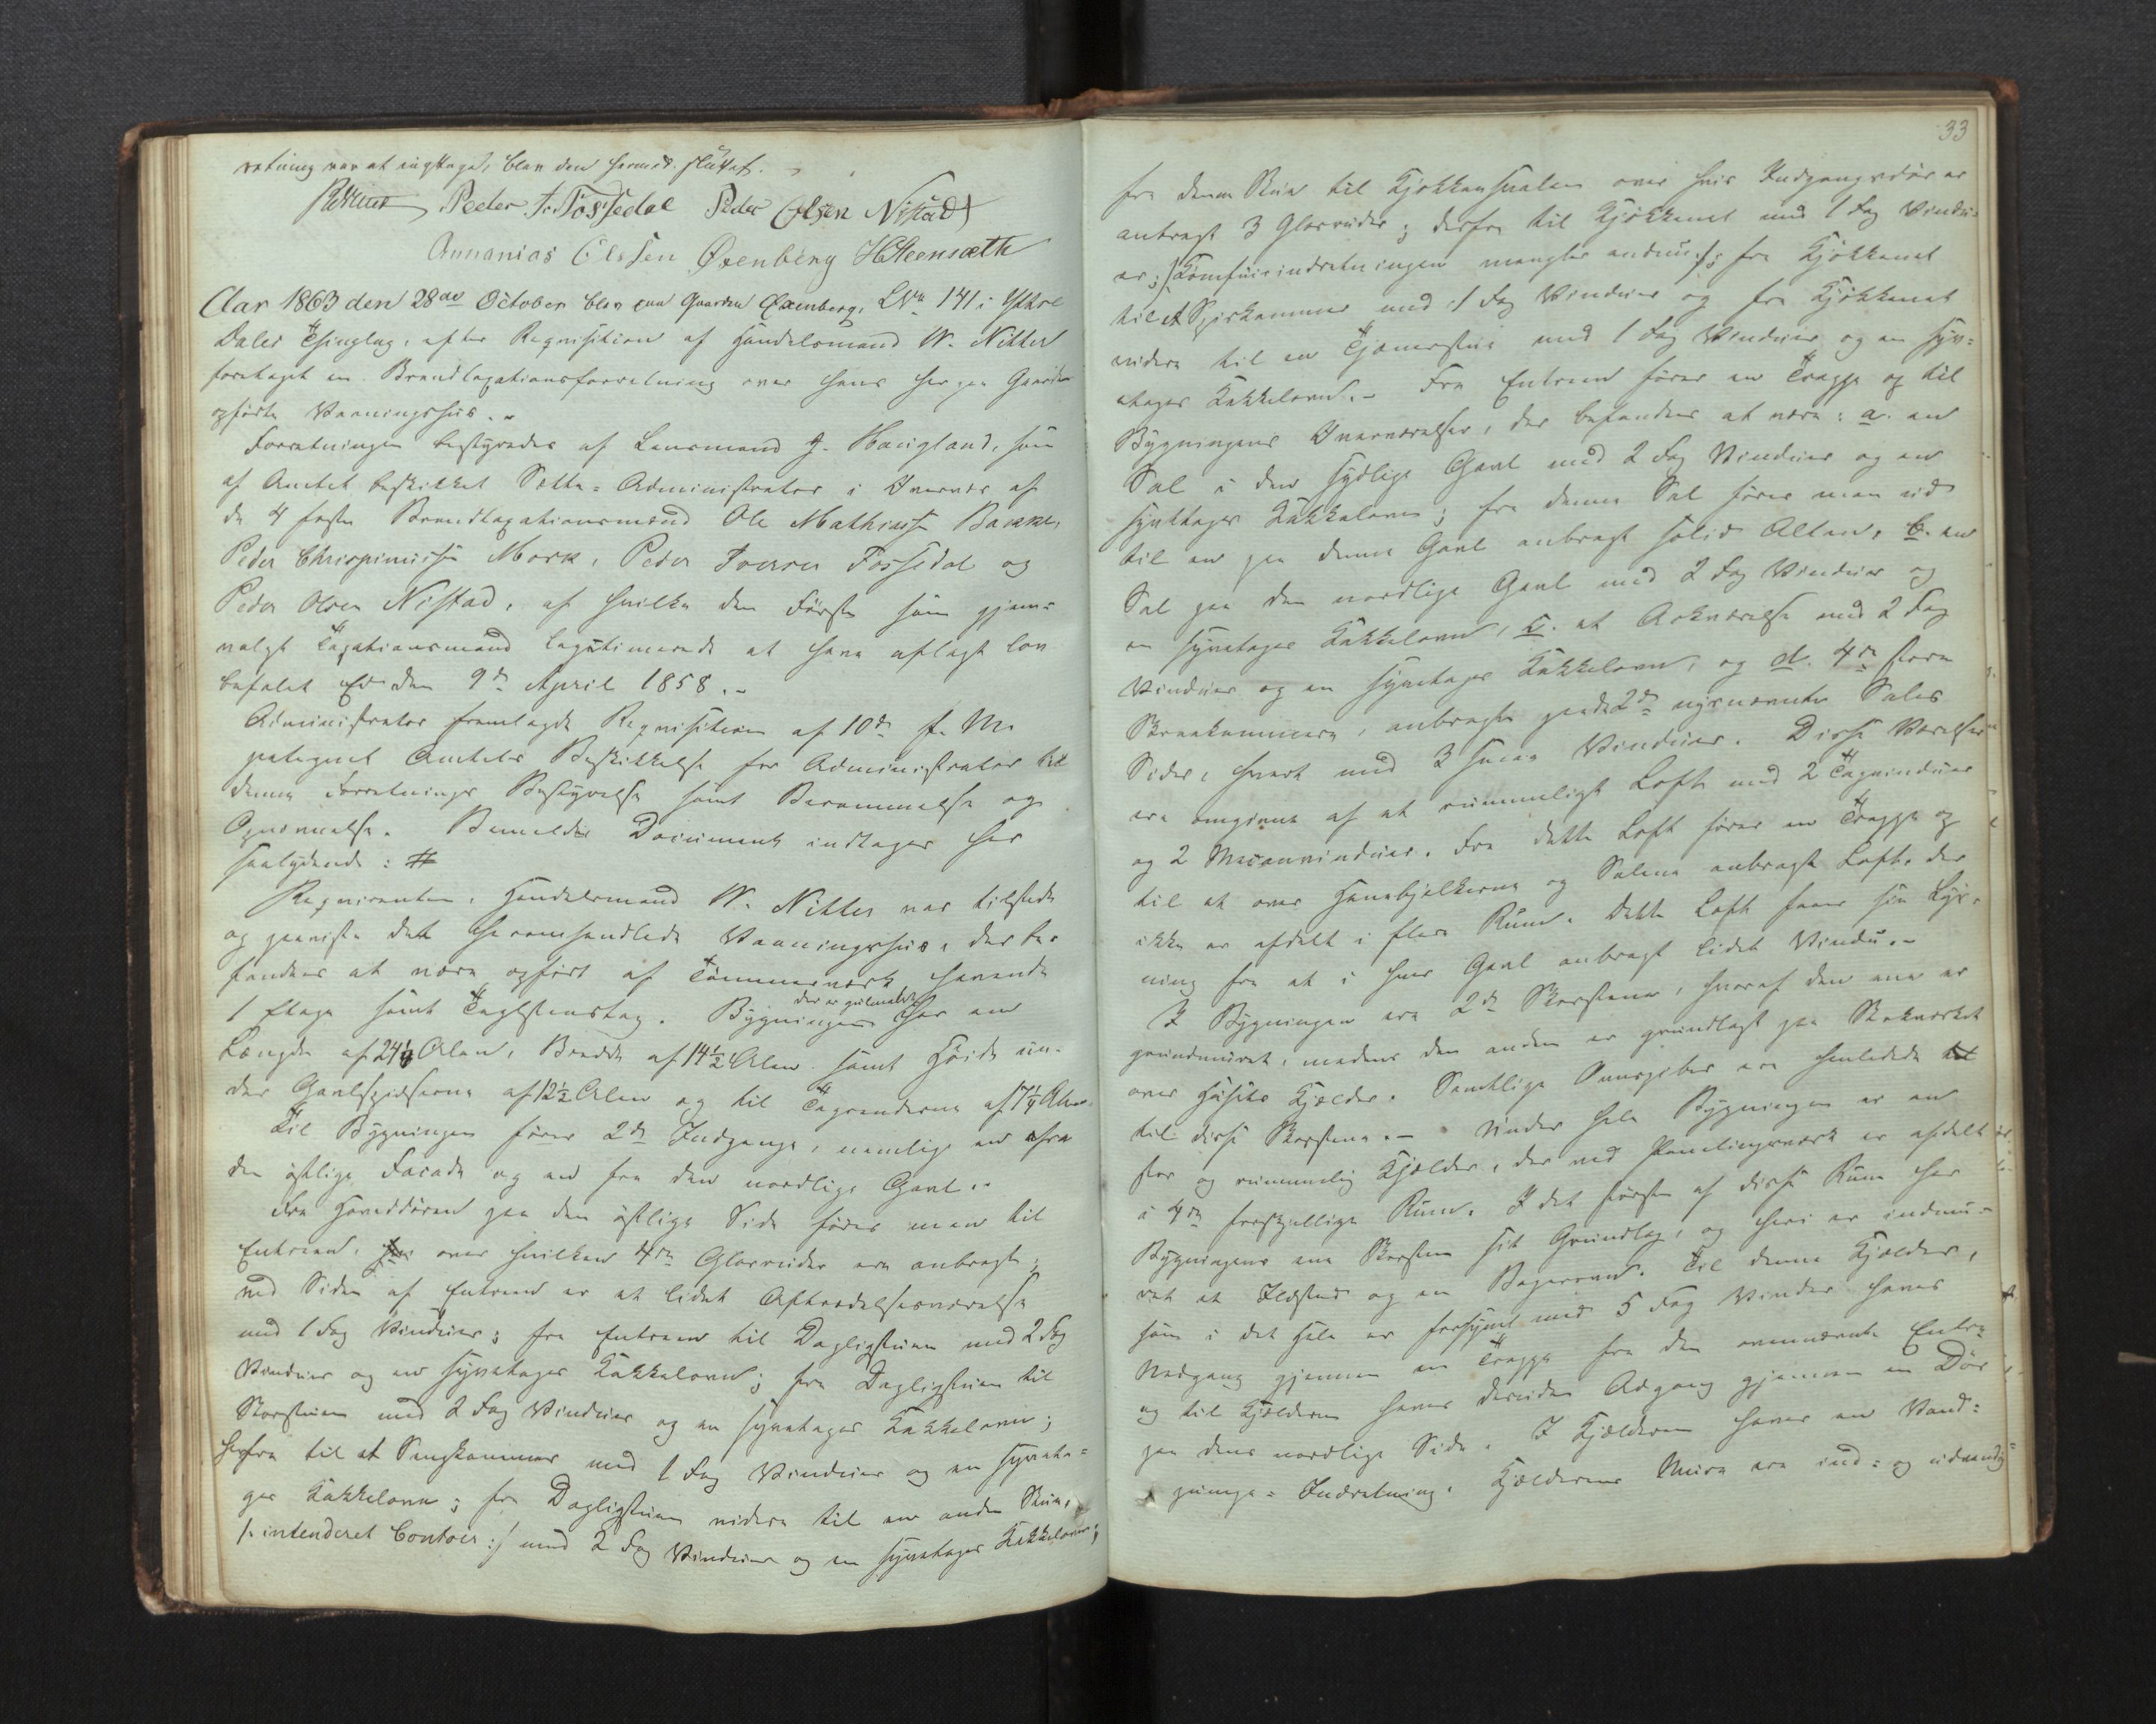 retning var at iagttage, blev den hermed sluttet.
Peder Iv. Fossedal Peder Olsen Nistad
Annanias Olssen Øxenberg HSteensæth
Aar 1863 den 28de October blev paa Gaarden Øxenberg, LNo 141 i Yttre
Dales Thinglag, efter Reqvisition af Handelsmand W. Nitter
foretaget en Brandtaxationsforretning over hans her paa Gaarden
opførte Vaaningshus. -
Forretningen bestyredes af Lensmand J. Haugland, som
af Amtet beskikket Sætte-Administrator i Overvær af
de 4 faste Brandtaxationsmænd Ole Mathiass. Bakke,
Peder Chrispiniss. Mork, Peder Iversen Fossedal og
Peder Olsen Nistad, af hvilke den Første som gjen-
valgt Taxationsmand legitimerede at have aflagt lov
befalet Ed den 9de April 1858. -
Administrator fremlagde Reqvisition af 10de f. M.
paategnet Amtets Beskikkelse for Administrator til
denne Forretnings Bestyrelse samt Berammelse og
Opnævnelse. Bemeldte Document indtages her
saalydende: #
Reqvirenten, Handelsmand W. Nitter var tilstede
og paaviste det heromhandlede Vaaningshus, der be-
fandtes at være opført af Tømmerværk havende
1 Etage samt Taglstenstag. Bygningen der er gulmalet har en
Længde af 24 1/4 Alen, Bredde af 14 1/2 Alen samt Høide un-
der Gavlspidserne af 12 1/2 Alen og til Tagrenderne af 7 1/4 Alen.
Til Bygningen fører 2de Indgange, nemlig en fra
den østlige Facade og en fra den nordlige Gavl. -
Fra Hoveddøren paa den østlige Side fører man til
Entreen, over hvilken 4re Glasruder ere anbragt;
ved Siden af Entreen er et lidet Aftrædelsesværelse
med 1 Fag Vinduer; fra Entreen til Dagligstuen med 2 Fag
Vinduer og en tyvetages Kakkelovn; fra Dagligstuen til
Storstuen med 2 Fag Vinduer og en tyvetages Kakkelovn;
herfra til et Sengkammer med 1 Fag Vinduer og en tyveta-
ges Kakkelovn; fra Dagligstuen videre til en anden Stue,
/: intenderet Contoir :/ med 2 Fag Vinduer og en tyvetages Kakkelovn;
33
fra denne Stue til Kjøkkensvalen over hvis Indgangsdør er
anbragt 3 Glasruder; derfra til Kjøkkenet med 1 Fag Vindu-
er; /: Komfurindretningen mangler endnu :/; fra Kjøkkenet
til et Spiskammer med 1 Fag Vinduer og fra Kjøkkenet
videre til en Tjenerstue med 1 Fag Vinduer og en tyv-
etages Kakkelovn. - Fra Entreen fører en Trappe op til
Bygningens Overværelser, der befandtes at være: a. en
Sal i den sydlige Gavl med 2 Fag Vinduer og en
tyvetages Kakkelovn; fra denne Sal fører man ud
til en paa denne Gavl anbragt solid Altan, b. en
Sal paa den nordlige Gavl med 2 Fag Vinduer og
en tyvetages Kakkelovn, c. et Arkværelse med 2 Fag
Vinduer og en tyvetages Kakkelovn, og d. 4re store
Skraakammere, anbragte paa de 2de nysnævnte Sales
Sider, hvert med 3 smaa Vinduer. Disse Værelser
ere omgivne af et rummeligt Loft med 2 Tagvinduer
og 2 Vinduer. Fra dette Loft fører en Trappe op
til et over Hanebjelkerne og Salene anbragt Loft, der
ikke er afdelt i flere Rum. Dette Loft faaer sin Lys-
ning fra et i hver Gavl anbragt lidet Vindu. -
I Bygningen ere 2de Skorstene, hvoraf den ene er
grundmuret, medens den anden er grundlagt paa Stokværket
over Husets Kjælder. Samtlige Ovnspiber ere henledede
til disse Skorstene. - Under hele Bygningen er en
stor og rummelig Kjælder, der ved Panelingsværk er afdelt
i 4re forskjellige Rum. I det første af disse Rum har
Bygningens ene Skorsten sit Grundlag, og heri er indmu-
ret et Ildsted og en Bagerovn. Til denne Kjælder,
som i det Hele er forsynet med 5 Fag Vinduer haves
Nedgang gjennem en Trappe fra den ovennævnte Entre
og til Kjælderen haves desuden Adgang gjennem en Dør
paa dens nordlige Side. I Kjælderen haves en Vand-
pumpe-Indretning. Kjælderens Mure ere ind- og udvendig